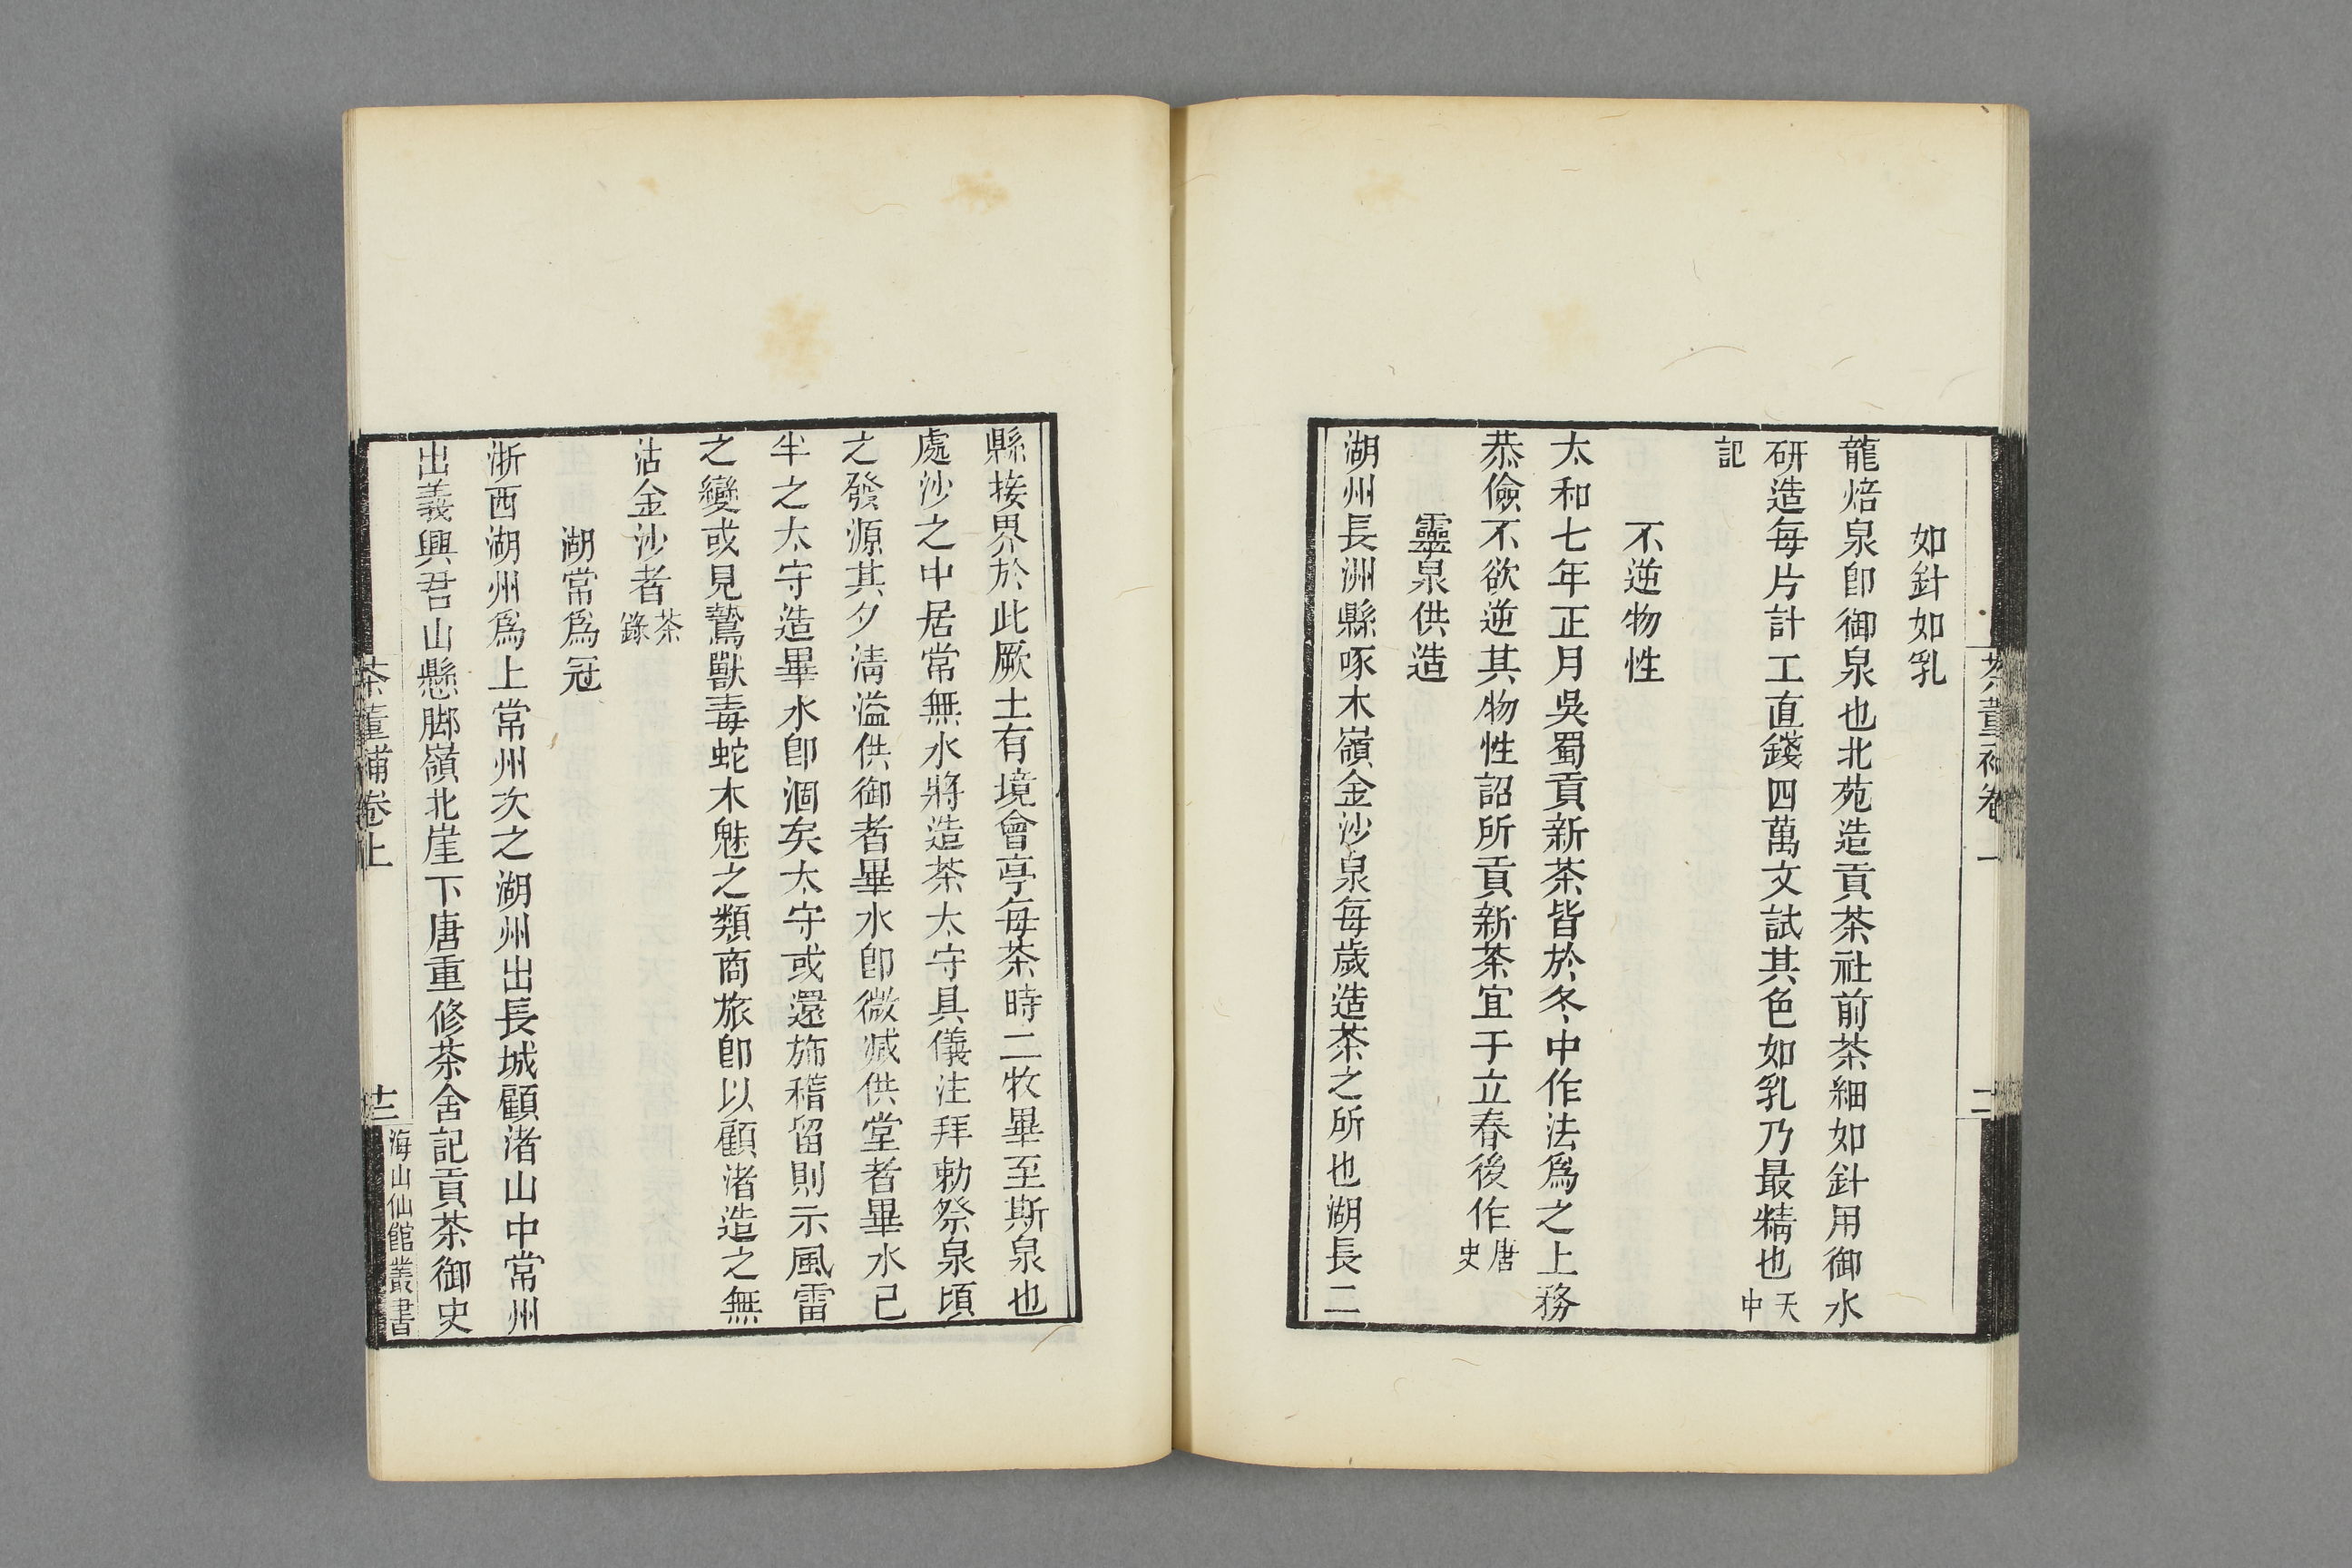 如針如乳
龍焙泉即御泉也北苑造貢茶社前茶細如針用御水
研造每片計工直錢四萬文試其色如乳乃最精也天中
記
不逆物性
太和七年正月吳蜀貢新茶皆於冬中作法爲之上務
恭儉不欲逆其物性詔所貢新茶宜于立春後作唐史
靈泉供造
湖州長洲縣啄木嶺金沙泉每歲造茶之所也湖長二
縣接界於此厥土有境會亭每茶時二牧畢至斯泉也
處沙之中居常無水將造茶太守具儀注拜勅祭泉頃
之發源其夕淸溢供御者畢水卽微减供堂者畢水已
半之太守造畢水卽涸矣太守或還斾稽留則示風雷
之變或見鷙獸毒蛇木魅之類商旅卽以顧渚造之無
沾金沙者茶錄
湖常爲冠
浙西湖州爲上常州次之湖州出長城顧渚山中常州
出義興君山懸脚嶺北崖下唐重修茶舍記貢茶御史
茶董補卷上
十三
海山仙館叢書